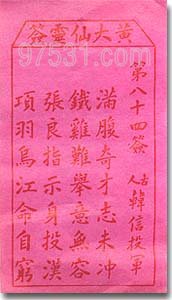 黃大仙靈簽
97531.com
第八十四簽
古人 韓信投軍
滿腹奇才志未冲
鐵雞難舉意無容
張良指示身投漢
項羽烏江命自窮